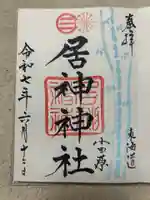 奉拝
東海道
小田原
居神神社
令和七年六月十三日